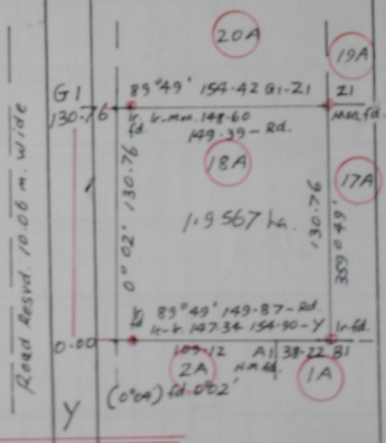 20A
19A
G1
89°49' 154.42 G1-Z1
Z1
130.76
k. k.mm. 148.60
fd.
149.39-Rd.
18A
17A
Road Resvd. 10.06 m. wide
0°02' 130.76
1.9567 ha.
130.76
359°49'
89°49' 149.87-Rd.
k-k. 147.34 154.90-Y
k.fd
0.00
109.12
A1
38.22
B1
2A
1A
(0°04') fd 0°02'
Y